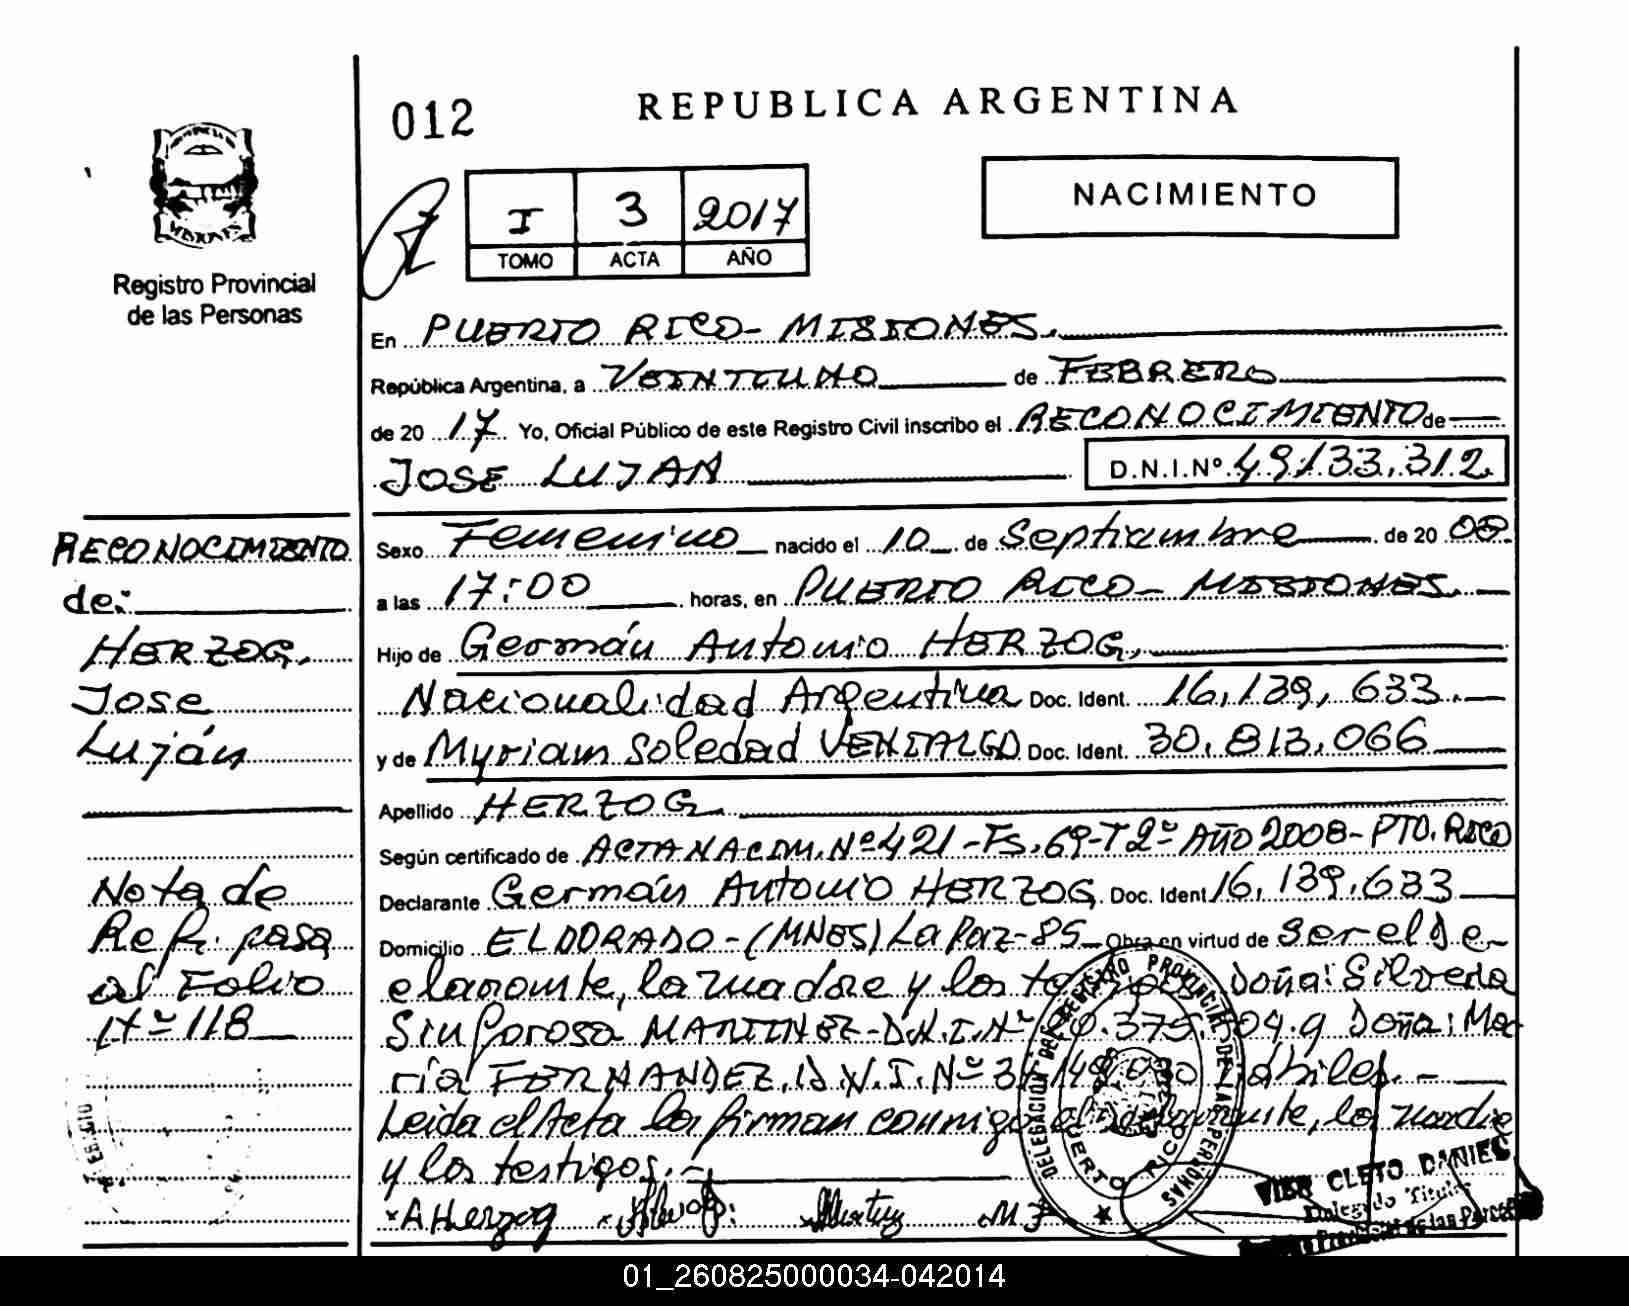 012
REPUBLICA ARGENTINA
I 3 2017
TOMO ACTA AÑO
NACIMIENTO
MISIONES
Registro Provincial
de las Personas
En PUERTO RICO - MISIONES.
República Argentina, a VEINTIUNO de FEBRERO
de 20 17 Yo, Oficial Público de este Registro Civil inscribo el RECONOCIMIENTO de
JOSE LUJAN D.N.I.Nº 49.133.312.
RECONOCIMIENTO
de:
HERZOG,
Jose
Luján
Nota de
Ref. pasa
al Folio
Nº 118
Sexo Femenino nacido el 10 de Septiembre de 20 08.
a las 17:00 horas, en PUERTO RICO - MISIONES.
Hijo de Germán Antonio HERZOG,
Nacionalidad Argentina Doc. Ident. 16,139,633.
y de Myriam Soledad VENIALGO Doc. Ident. 30.813.066
Apellido HERZOG
Según certificado de ACTA NACIM. Nº 421 - Fs. 69 - T 2º AÑO 2008 - PTO. RICO
Declarante Germán Antonio HERZOG. Doc. Ident 16,139.633
Domicilio ELDORADO - (MNES) La Paz - 85 Obra en virtud de Ser el De-
clarante, la madre y los testigos Doña: Silveria
Sinforosa MARTINEZ - D.N.I. Nº Doña: Ma
ría FERNANDEZ, D.N.I. Nº hábiles. -
Leida el Acta la firman conmigo el declarante, la madre
y los testigos. -
A Herzog M F
DELEGACION DEL REGISTRO PROVINCIAL DE LAS PERSONAS
PUERTO RICO
CLETO DANIEL
Delegado Titular
Provincial de las Personas
01_260825000034-042014